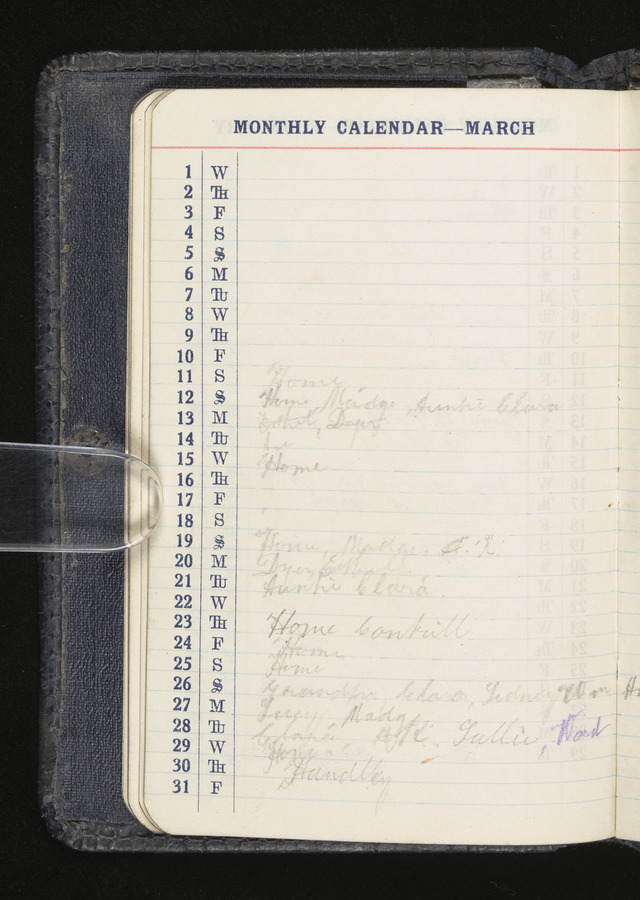 MONTHLY CALENDAR—MARCH
1 W
2 TH
3 F
4 S
5 S
6 M
7 TU
8 W
9 TH
10 F
11 S Home
12 S Home Madge, Auntie Clara
13 M
14 TU
15 W Home
16 TH
17 F
18 S
19 S Home, Madge,
20 M
21 TU Auntie Clara.
22 W
23 TH Home
24 F Home
25 S Home
26 S Clara, Sidney
27 M Madge
28 TU Sallie, Ward
29 W Home
30 TH Handley
31 F